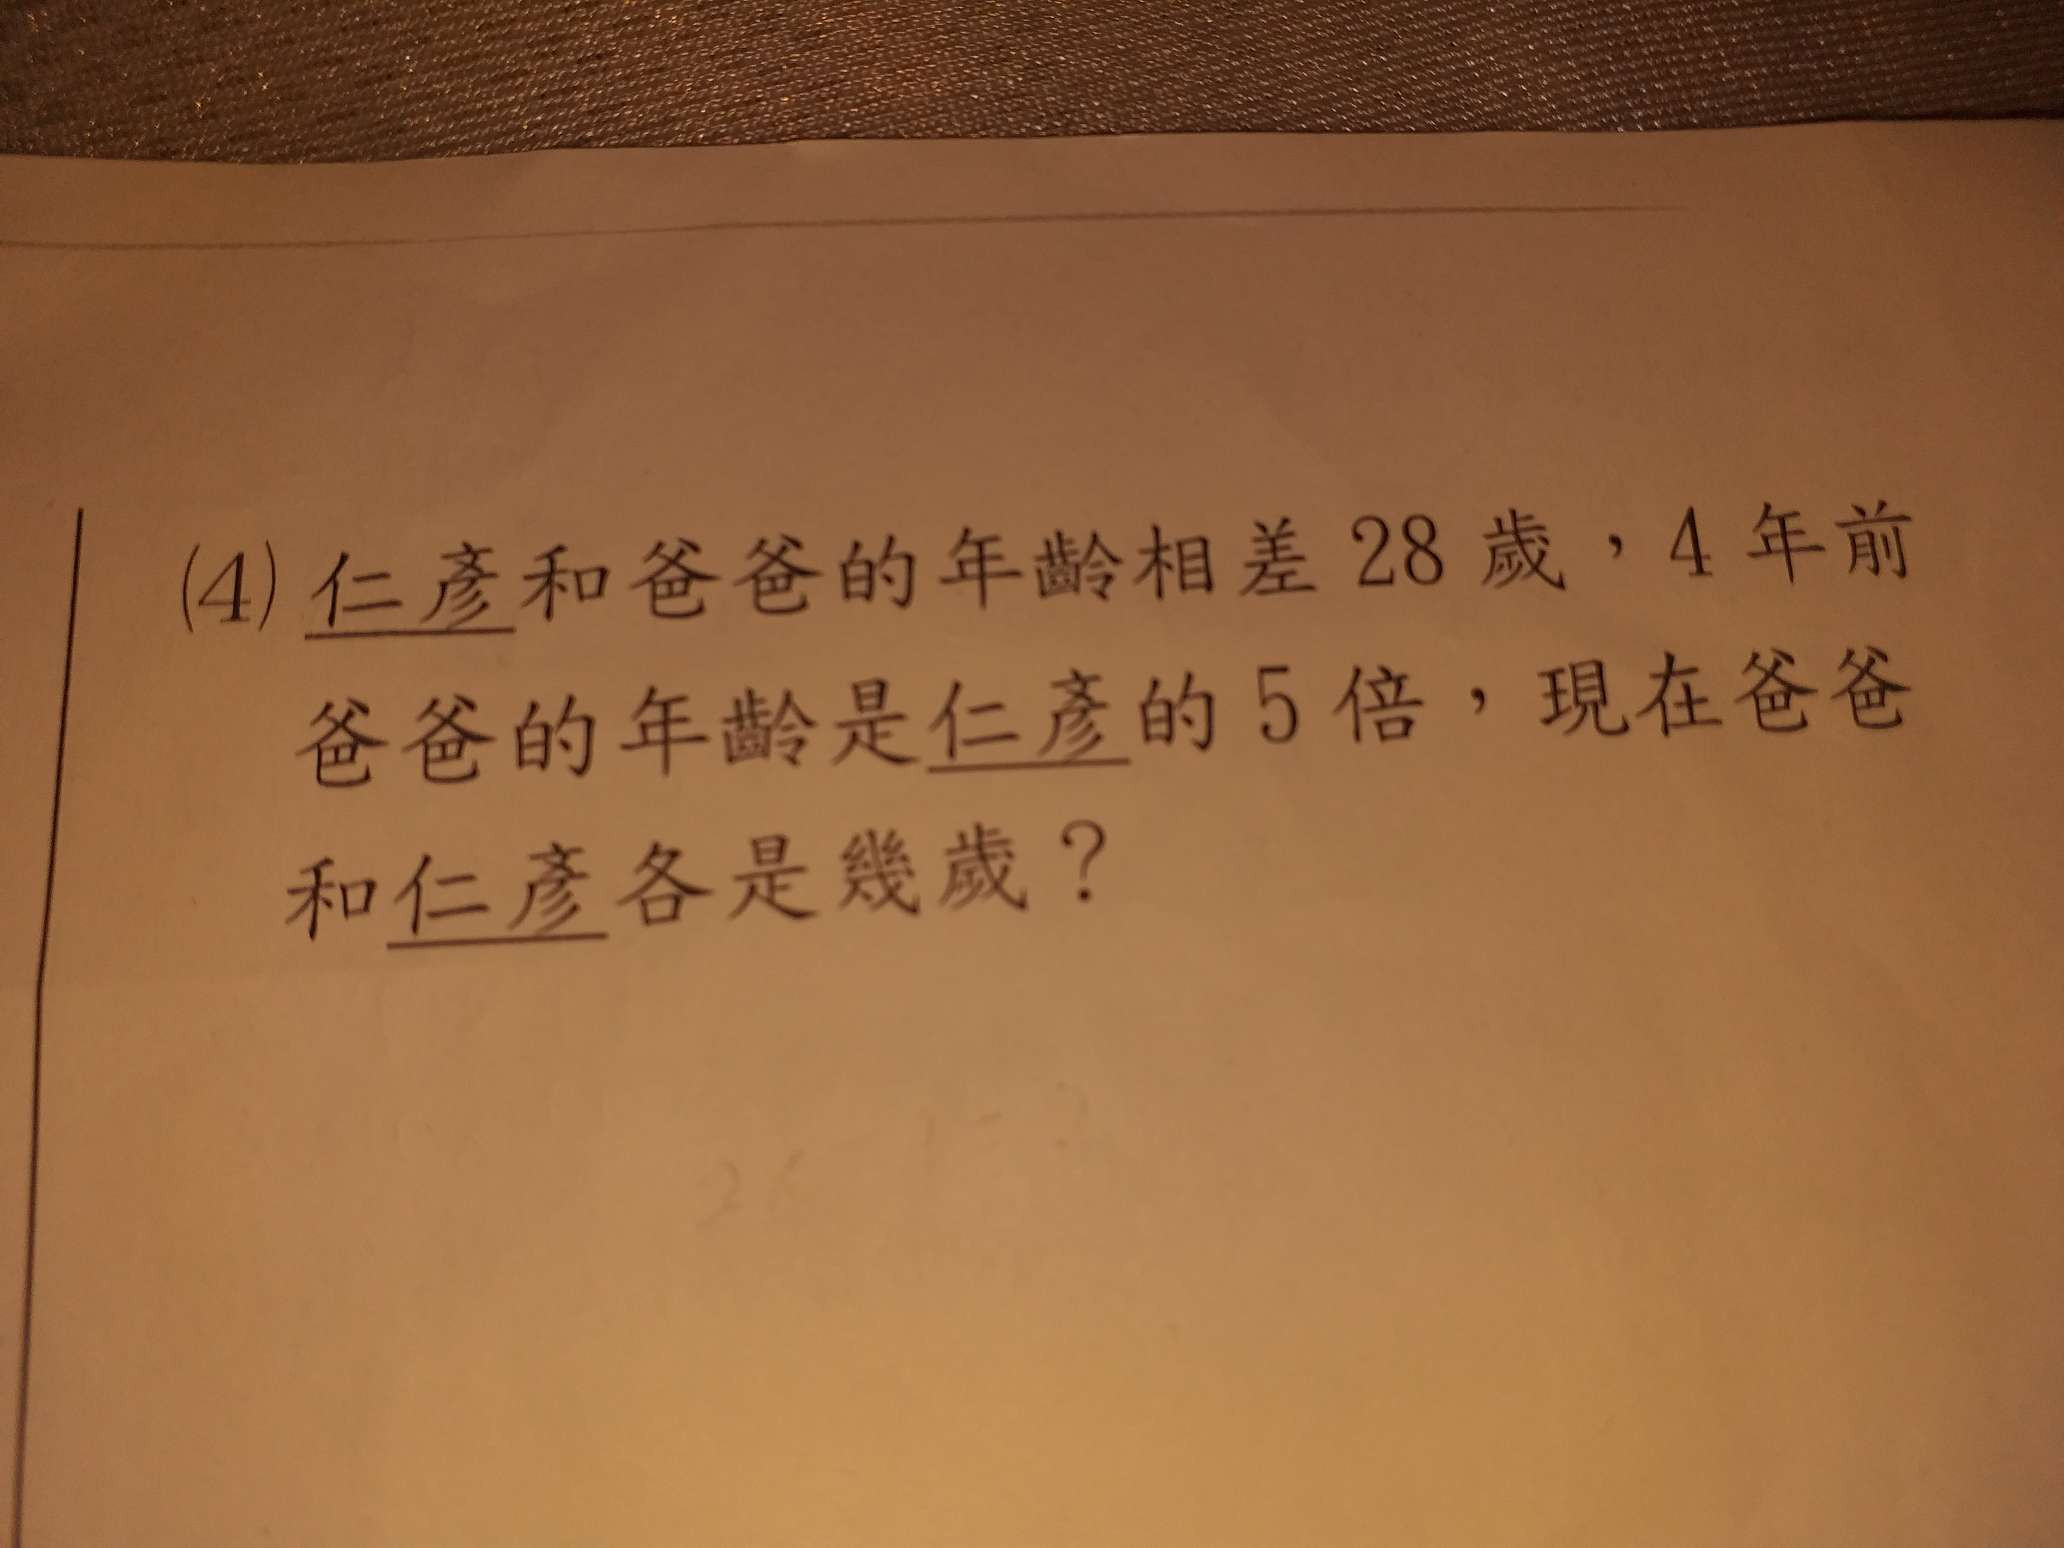 (4) 仁彥和爸爸的年齡相差 28 歲，4 年前
爸爸的年齡是仁彥的 5 倍，現在爸爸
和仁彥各是幾歲？